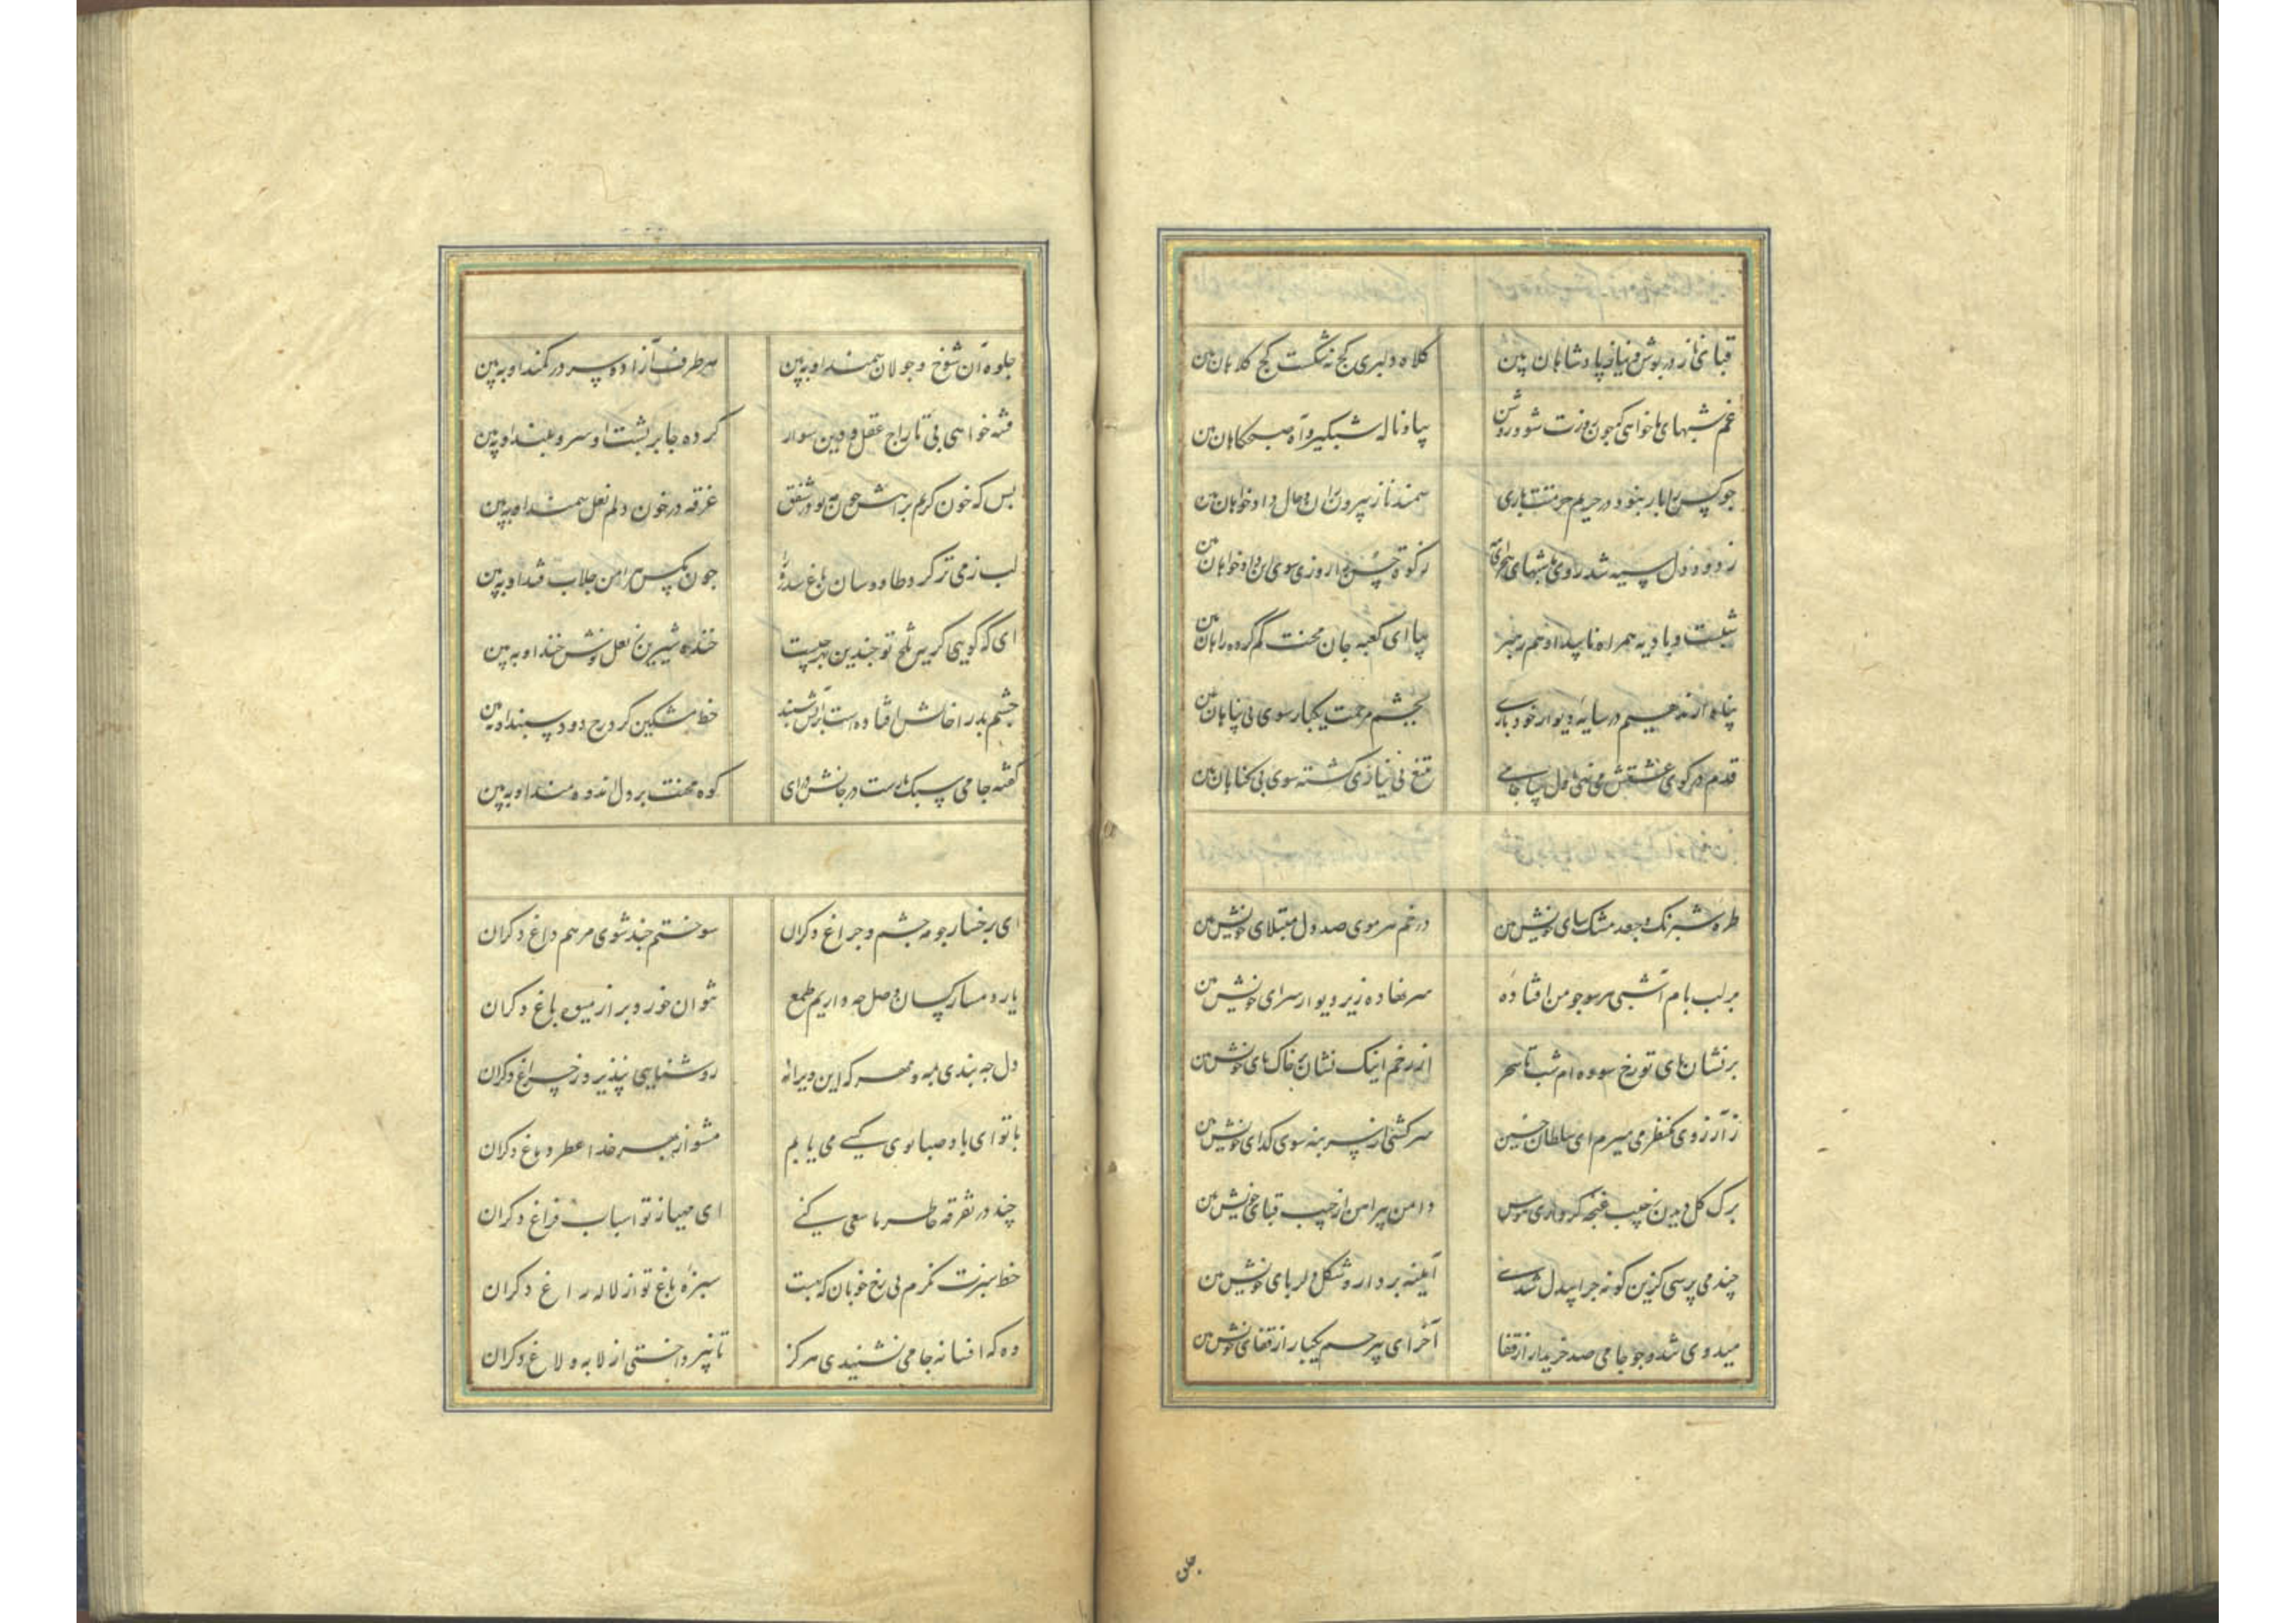 قبای ناز در پوش و نیاز پادشاهان بین کلاه دلبری کج نه شکست کج کلاهان بین
غم شبهای ما خواهی که چون روزت شود روشن بیا و ناله شبگیر و آه صبحگاهان بین
چو کس را بار نبود در حریم حرمتت باری سمند ناز بیرون ران و حال دادخواهان بین
ز دود دل سیه شد روی ما شبهای زکوة حسن را روزی سوی این دادخواهان بین
شبست و بادیه همراه ناپیدا و هم رهبر بیا ای کعبه جان محنت گم کرده راهان بین
پناه آورده‌ایم در سایه دیوار خود باری بچشم مرحمت یکبار سوی بی پناهان بین
قدم در کوی عشقش می نهی اول بیا جامی تیغ بی نیازی کشته سوی بی گناهان بین
طره شبرنگ و جعد مشک سای خویش بین در خم هر موی صد دل مبتلای خویش بین
بر لب بام آ شبی هر سو چو من افتاده سر نهاده زیر دیوار سرای خویش بین
بر نشان پای تو رخ سوده‌ام شب تا سحر از رخم اینک نشان بر خاک پای خویش بین
ز آرزوی یکنظر می میرم ای سلطان حسن سرکشی از سر بنه سوی گدای خویش بین
برگ گل دیدن ز جیب غنچه گر داری هوس دامن پیراهن از جیب قبای خویش بین
چند می پرسی کزین گونه چرا بیدل شدی آینه بردار و شکل دلربای خویش بین
میدوی شد چو جامی صد خریدار از قفا آخر ای بیرحم یکبار از قفای خویش بین
جلوه آن شوخ و جولان سمند او ببین هر طرف آزاده سر در کمند او ببین
فتنه خواهی بی تاراج عقل و دین سوار کرده جا بر پشت او سرو بلند او ببین
بس که خون گریم براهش چون مه نو در شفق غرقه در خون دلم نعل سمند او ببین
لب ز می تر کرد طاووسان باغ سدره را چون مگس بر دامن جلاب قند او ببین
ای که گویی گریه تلخ تو چندین بهر چیست خنده شیرین لعل نوش خند او ببین
چشم بد را خالش افتاده است بر آتش سپند خط مشکین گرد رخ دود سپند او ببین
گفته جامی سبک در جانش درآی کوه محنت بر دل اندوه مند او ببین
ای برخسار چو مه چشم و چراغ دگران سوختم چند شوی مرهم داغ دگران
یار دمساز کسان وصل چه داریم طمع نتوان خورد بر از میوه باغ دگران
دل چه بندی به مه و مهر که این ویرانه روشنایی نپذیرد ز چراغ دگران
با تو ای باد صبا بوی کسی می یابم مشو از بهر خدا عطر دماغ دگران
چند در تفرقه خاطر ما سعی کنی ای مهیا ز تو اسباب فراغ دگران
خط سبزت نگرم نی رخ خوبان که بهست سبزه باغ تو از لاله راغ دگران
وه که افسانه جامی نشنیدی هرگز تا نپرداختی از لابه و لاغ دگران
جلوه